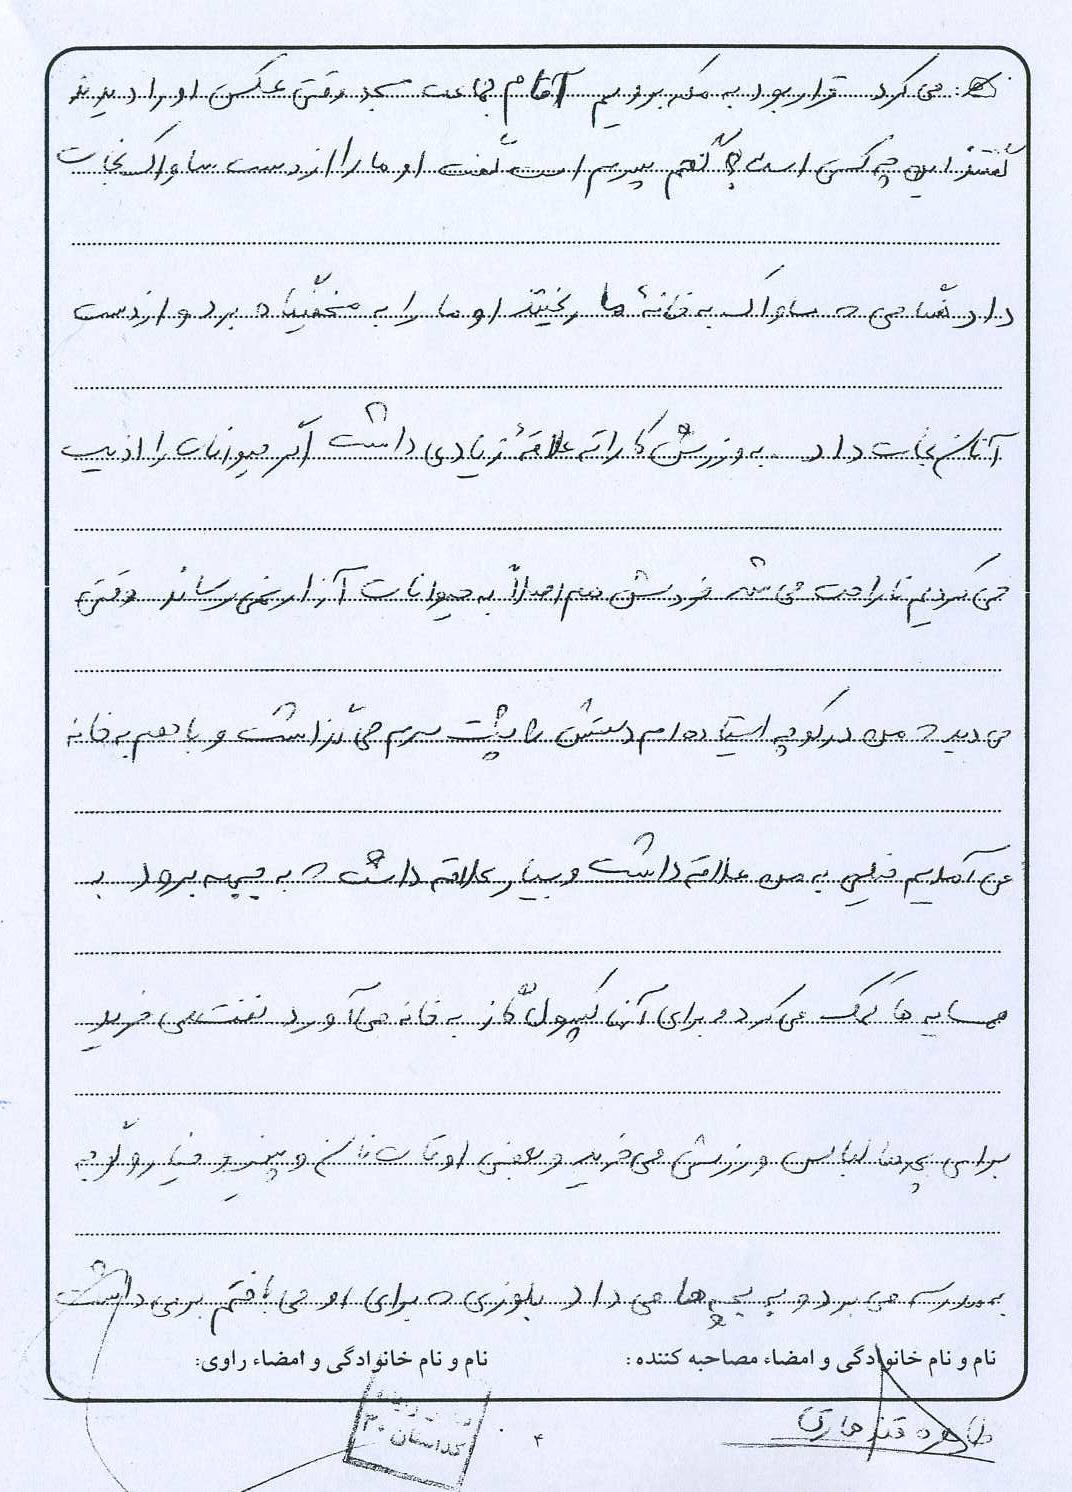 می کرد قرار بود به مکه برویم آقام جماعت مسجد وقتی عکس او را دیدند
گفتند این چه کسی است؟ گفتم پسرم است گفت او ما را از دست ساواک نجات
داد شبا می که ساواک به خانهٔ ما ریختند او ما را به مخفیگاه برد و از دست
آنان نجات داد به ورزش کاراته علاقهٔ زیادی داشت اگر حیوانات را اذیت
می کردیم ناراحت می شد خودش هم اصلاً به حیوانات آزار نمی رساند وقتی
می دید که من در کوچه ایستاده ام دستش را پشت سرم می گذاشت و با هم به خانه
می آمدیم خیلی به من علاقه داشت و بسیار علاقه داشت که به جبهه برود به
همسایه ها کمک می کرد و برای آنها کپسول گاز به خانه می آورد نفت می خرید
برای بچه ها لباس ورزشی می خرید و بعضی اوقات نان و پنیر و خیار و گوجه
به مدرسه می برد و به بچه ها می داد بلوزی که برای او می بافتم برمی داشت
نام و نام خانوادگی و امضاء مصاحبه کننده :
نام و نام خانوادگی و امضاء راوی:
طاهره قندهاری
گلستان ۳۰
۴